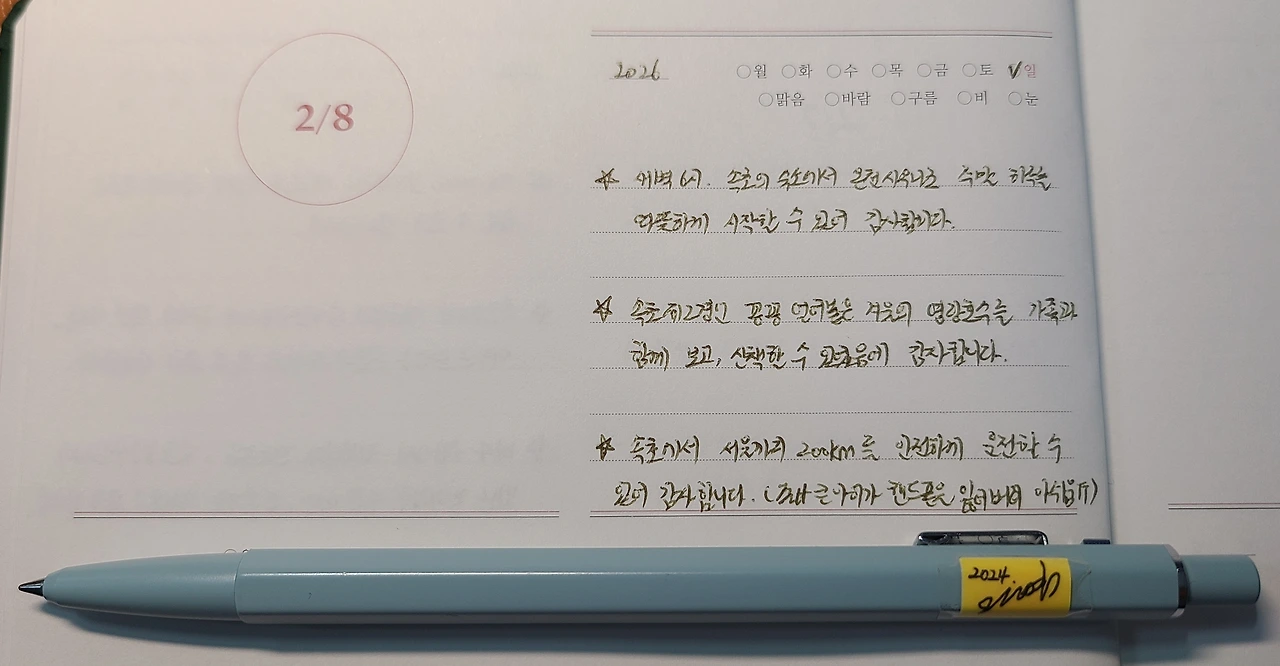 2/8
2026
월 화 수 목 금 토 일
맑음 바람 구름 비 눈
☆ 새벽 6시. 속초의 숙소에서 온천사우나로 주말 하루를
따뜻하게 시작할 수 있어 감사합니다.
☆ 속초제2경인 꽁꽁 얼어붙은 겨울의 영랑호수를 가족과
함께 보고, 산책할 수 있었음에 감사합니다.
☆ 속초에서 서울까지 200km를 안전하게 운전할 수
있어 감사합니다. (큰아이가 핸드폰을 잃어버려 아쉬움ㅠ)
2024